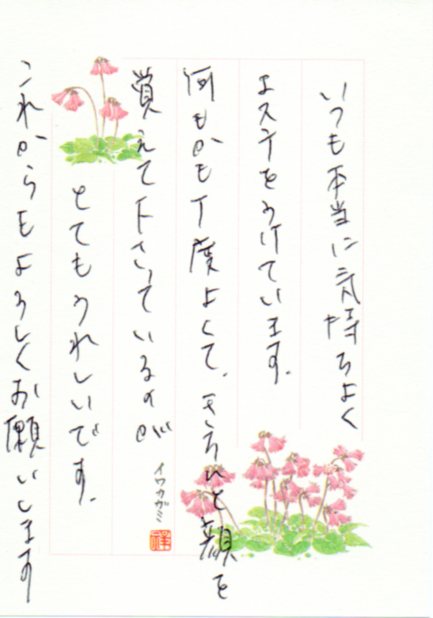 いつも本当に気持ちよく
エステをうけています。
何もかも丁度よくて、きちんと顔を
覚えて下さっているのが
とてもうれしいです。
これからもよろしくお願いします
イワカガミ